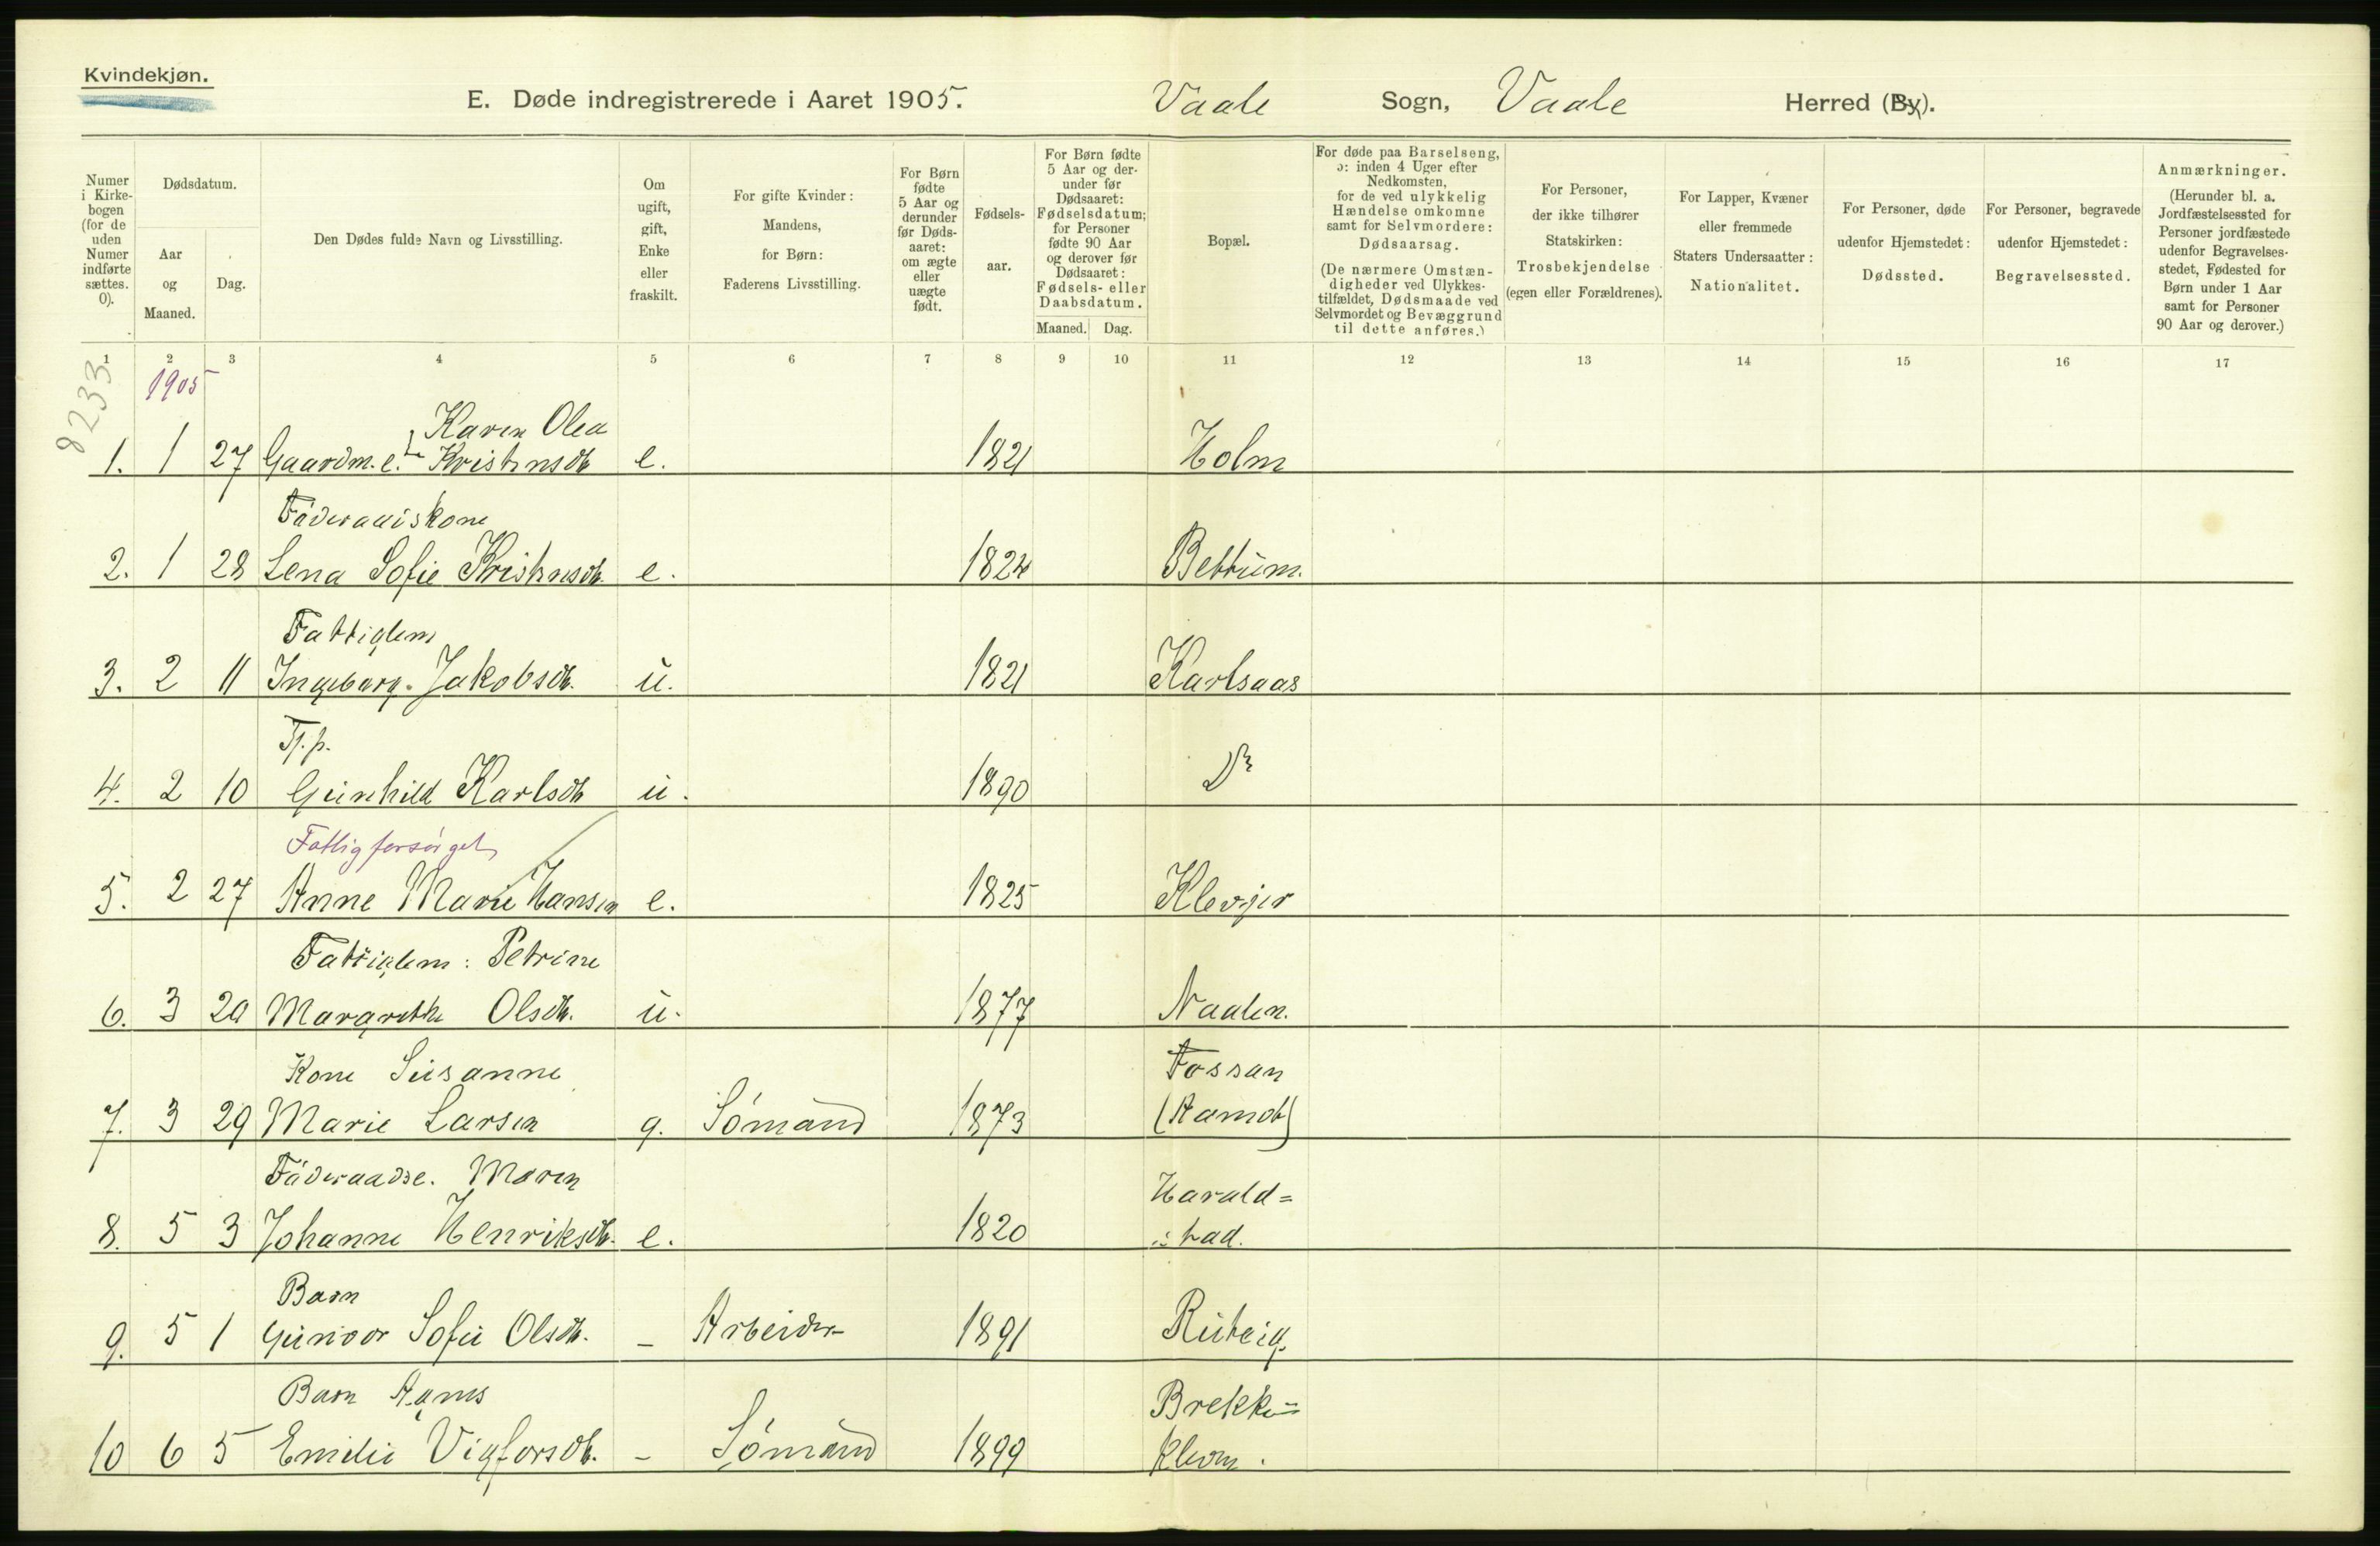 Kvindekjøn.
E. Døde indregistrerede i Aaret 1905. Vaale Sogn, Vaale Herred (By).
Numer i Kirke-bogen (for de uden Numer indførte sættes. 0).
Dødsdatum.
Aar og Maaned.
Dag.
Den Dødes fulde Navn og Livsstilling.
Om ugift, gift, Enke eller fraskilt.
For gifte Kvinder: Mandens, for Børn: Faderens Livsstilling.
For Børn fødte 5 Aar og derunder før Døds-aaret: om ægte eller uægte født.
Fødsels-aar.
For Børn fødte 5 Aar og der-under før Dødsaaret: Fødselsdatum; for Personer fødte 90 Aar og derover før Dødsaaret: Fødsels- eller Daabsdatum.
Maaned. Dag.
Bopæl.
For døde paa Barselseng, ɔ: inden 4 Uger efter Nedkomsten, for de ved ulykkelig Hændelse omkomne samt for Selvmordere: Dødsaarsag.
(De nærmere Omstæn-digheder ved Ulykkes-tilfældet, Dødsmaade ved Selvmordet og Bevæggrund til dette anføres.)
For Personer, der ikke tilhører Statskirken: Trosbekjendelse (egen eller Forældrenes).
For Lapper, Kvæner eller fremmede Staters Undersaatter: Nationalitet.
For Personer, døde udenfor Hjemstedet: Dødssted.
For Personer, begravede udenfor Hjemstedet: Begravelsessted.
Anmærkninger.
(Herunder bl. a. Jordfæstelsessted for Personer jordfæstede udenfor Begravelses-stedet, Fødested for Børn under 1 Aar samt for Personer 90 Aar og derover.)
1 2 3 4 5 6 7 8 9 10 11 12 13 14 15 16 17
8233
1905
Karen Olea
1. 1 27 Gaardm.e. Kristnsdtr e. 1821 Holm
Föderaadskone
2. 1 28 Lena Sofie Kristnsdtr. e. 1824 Bettum.
Fattiglem
3. 2 11 Ingeborg Jakobsdtr. u. 1821 Karlsaas
Tj.p.
4. 2 10 Gunhild Karlsdtr u. 1890 Do
Fattigforsörget
5. 2 27 Anne Marie Hansen e. 1825 Klevjer
Fattiglem: Petrine
6. 3 20 Margrethe Olsdtr. u. 1877 Naalen.
Kone Susanne Fossan
7. 3 29 Marie Larsen g. Sómand 1873 (Aamot)
Föderaadse. Maren Harald=
8. 5 3 Johanne Henriksdtr. e. 1820 stad.
Barn
9. 5 1 Gunvor Sofie Olsdtr. - Arbeider 1891 Ruteig.
Barn Agnes Brekke=
10 6 5 Emilie Vigforsdtr. - Sómand 1899 klevm.